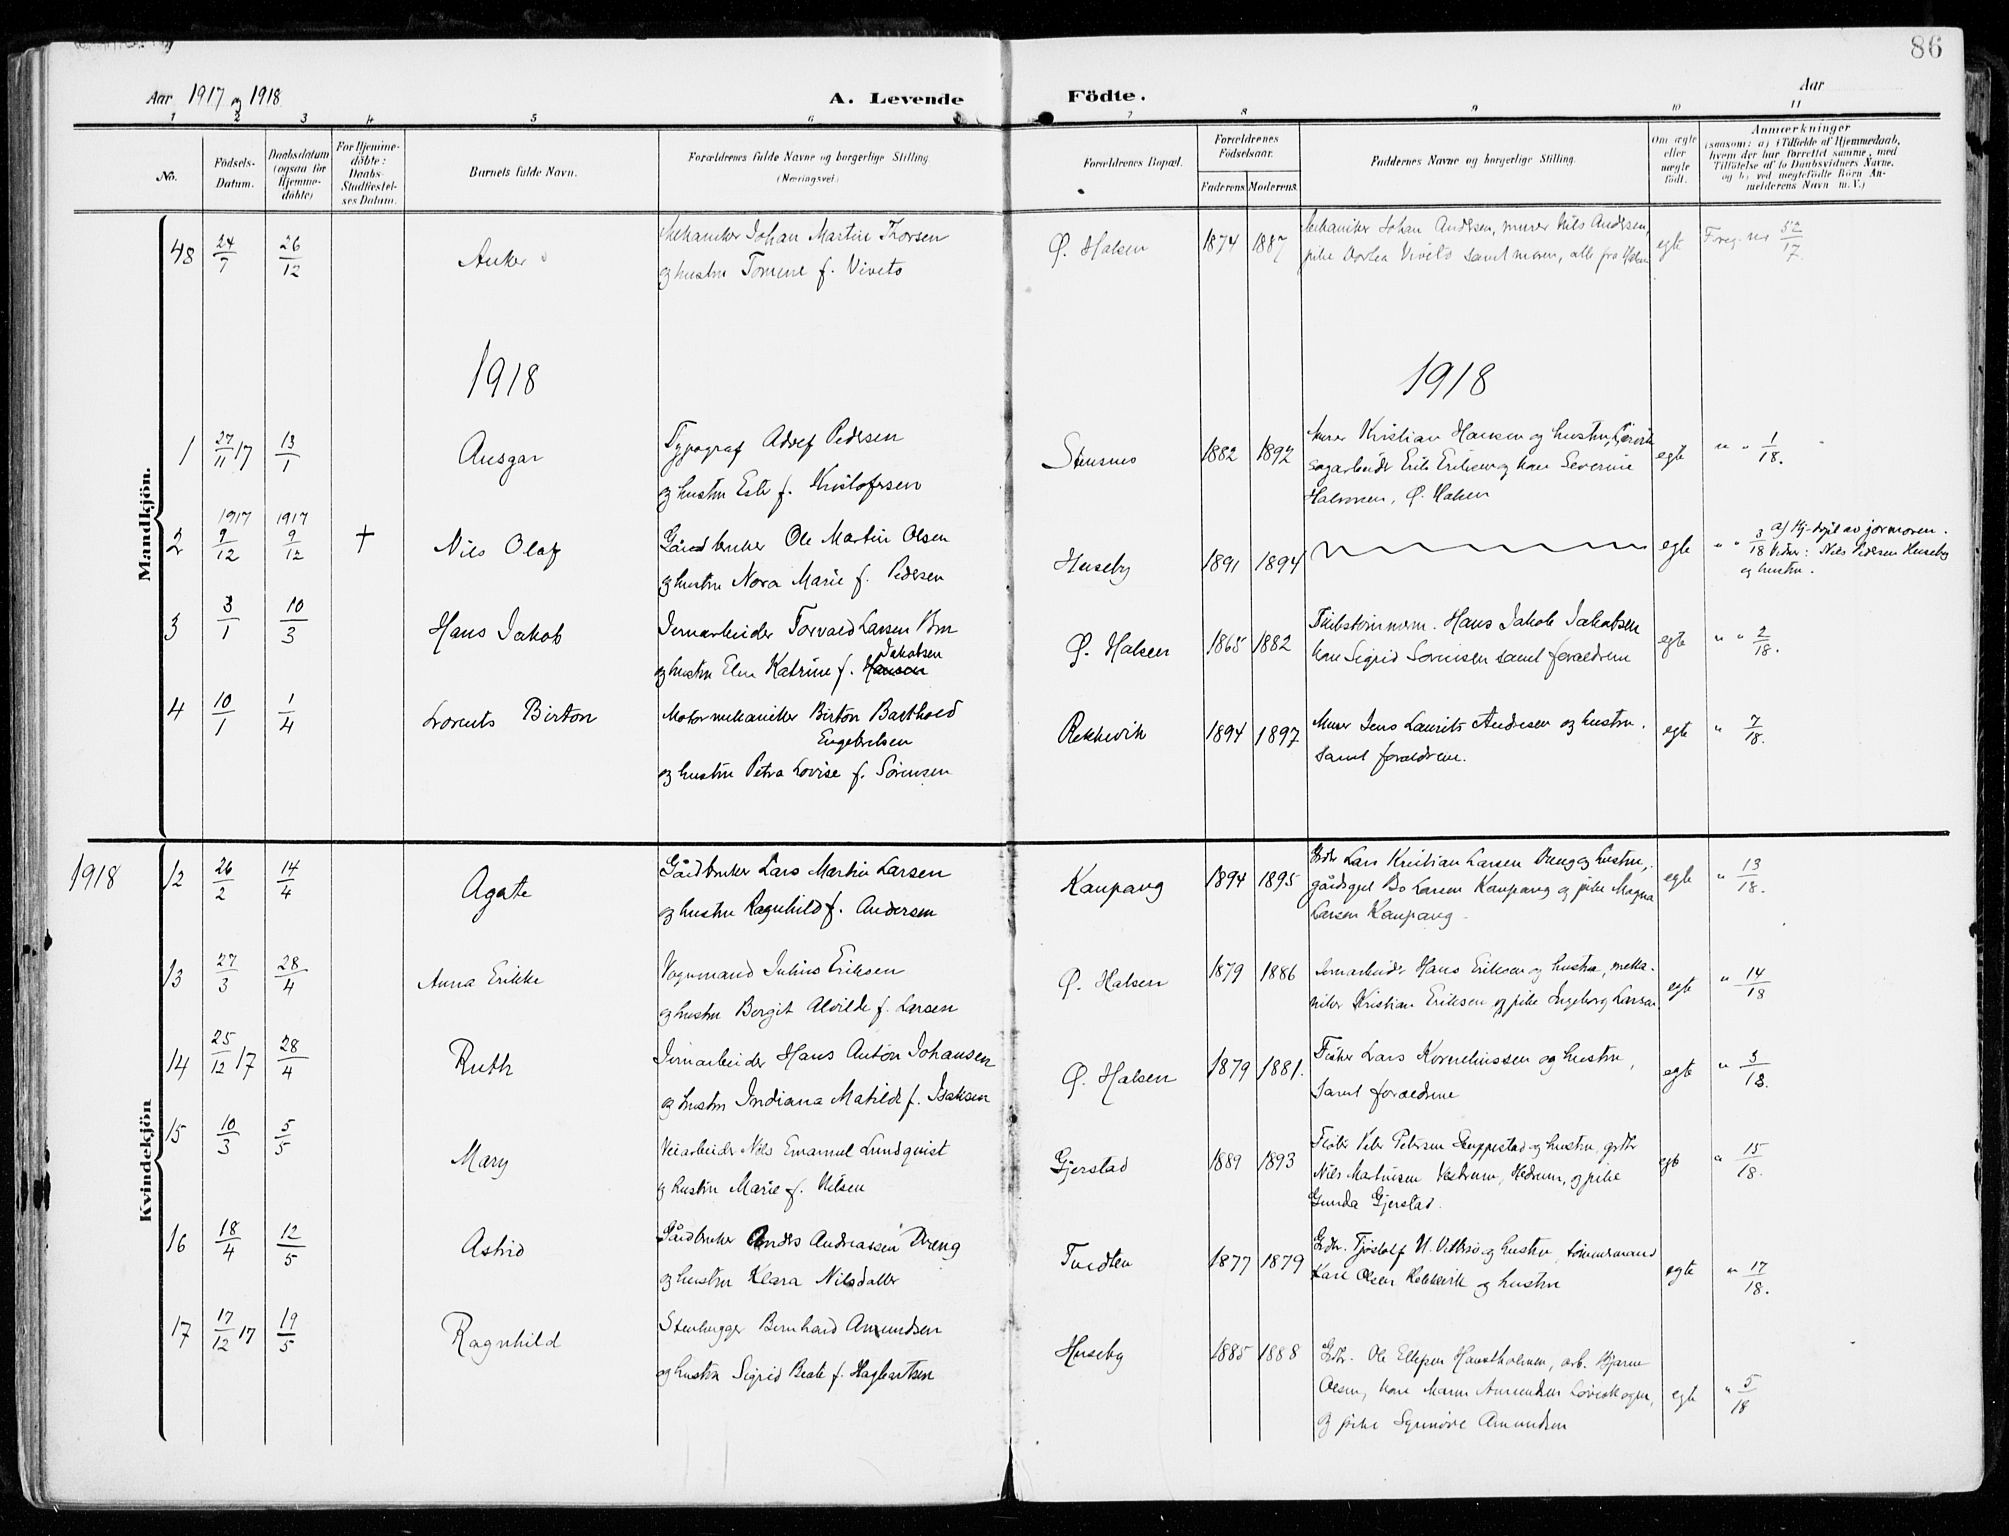 86
Aar 1917 og 1918
A. Levende Födte.
Aar
1 2 3 4 5 6 7 8 9 10 11
No.
Födsels-Datum.
Daabsdatum (ogsaa for Hjemme-döbte)
For Hjemme-döbte: Daabs-Stadfæstel-ses Datum.
Barnets fulde Navn.
Forældrenes fulde Navne og borgerlige Stilling (Næringsvei.)
Forældrenes Bopæl.
Forældrenes Födselsaar.
Faderens. Moderens.
Faddernes Navne og borgerlige Stilling.
Om ægte eller uægte födt.
Anmærkninger
(saasom: a) i Tilfælde af Hjemmedaab, hvem der har forrettet samme, med Tilföielse af to Daabsvidners Navne, og b) ved uægtefödte Börn An-melderens Navn m. V.)
Mandkjön.
48 24/7 26/12 Anker Mekaniker Johan Martin Thorsen Ø. Halsen 1874 1887 Mekaniker Johan Andersen, murer Nils Andersen, egte Foreg. nr 52/17.
og hustru Tomine f. Vivets pike Dorthea Vivets samt moren, alle fra Halsen
1918 1918
1 27/11 17 13/1 Ansgar Typograf Adolf Pedersen Stensnes 1882 1892 Murer Kristian Hansen og hustru, egte " " 1/18.
og hustru Ester f. Kristofersen sagarbeider Erik Eriksen og kone Severine
Halvorsen, Ø. Halsen
2 1917 9/12 1917 9/12 † Nils Olaf Gårdbruker Ole Martin Olsen Huseby 1891 1894 egte " " 3/18 a/ Hj-døpt av jormoren.
og hustru Nora Marie f. Pedersen Vidner: Nils Pedersen Huseby
og hustru.
3 3/1 10/3 Hans Jakob Jernarbeider Torvald Larsen Ø. Halsen 1865 1882 Skibstømmerm. Hans Jakob Jakobsen egte " " 2/18.
og hustru Elen Katrine f. Hansen Jakobsen kone Sigrid Sørensen samt forældrene
4 10/1 1/4 Lorents Birton Motormekaniker Birton Barthold Rekkevik 1894 1897 Murer Jens Laurits Andresen og hustru. egte " 7/18.
Engebretsen samt forældrene.
og hustru Petra Lovise f. Sørensen
1918
Kvindekjön
12 26/2 14/4 Agate Gårdbruker Lars Martin Larsen Kaupang 1894 1895 Gbr Lars Kristian Larsen Dreng og hustru, egte " 13/18.
og hustru Ragnhild f. Andersen gårdsgut Bo Larsen Kaupang og pike Magna
Larsen Kaupang.
13 27/3 28/4 Anna Erikke Vognmand Julius Eriksen Ø. Halsen 1879 1886 Jernarbeider Hans Eriksen og hustru, meka- egte " 14/18
og hustru Borgit Alvilde f. Larsen niker Kristian Eriksen og pike Ingeborg Larsen
14 25/12 17 28/4 Ruth Jernarbeider Hans Anton Johansen Ø. Halsen 1879 1881. Fisker Lars Korneliussen og hustru, egte " 3/18.
og hustru Indiana Matilde f. Isaksen samt forældrene
15 10/3 5/5 Mary Veiarbeider Nils Emanuel Lundquist Gjerstad 1889 1893 Fløter Peter Petersen Seppestad og hustru, grdbr egte " 15/18.
og hustru Marie f. Nilsen Nils Mathisen Vestrum, Hedrum, og pike
Gunda Gjerstad.
16 18/4 12/5 Astrid Gårdbruker Anders Andreassen Dreng Tvedten 1877 1879 Gbr. Tjøstolf N. Vittersø og hustru, tømmermand egte " 17/18.
og hustru Klara Nilsdatter Karl Olsen Rekkevik og hustru
17 17/12 17 19/5 Ragnhild Stenhugger Bernhard Amundsen Huseby 1885 1888 Gbr. Ole Ellefsen Havstholmen, arb. Bjarne egte " 5/18
og hustru Sigrid Beate f. Hagbartsen Olsen, kone Maren Amundsen Løveskogen,
og pike Synnøve Amundsen